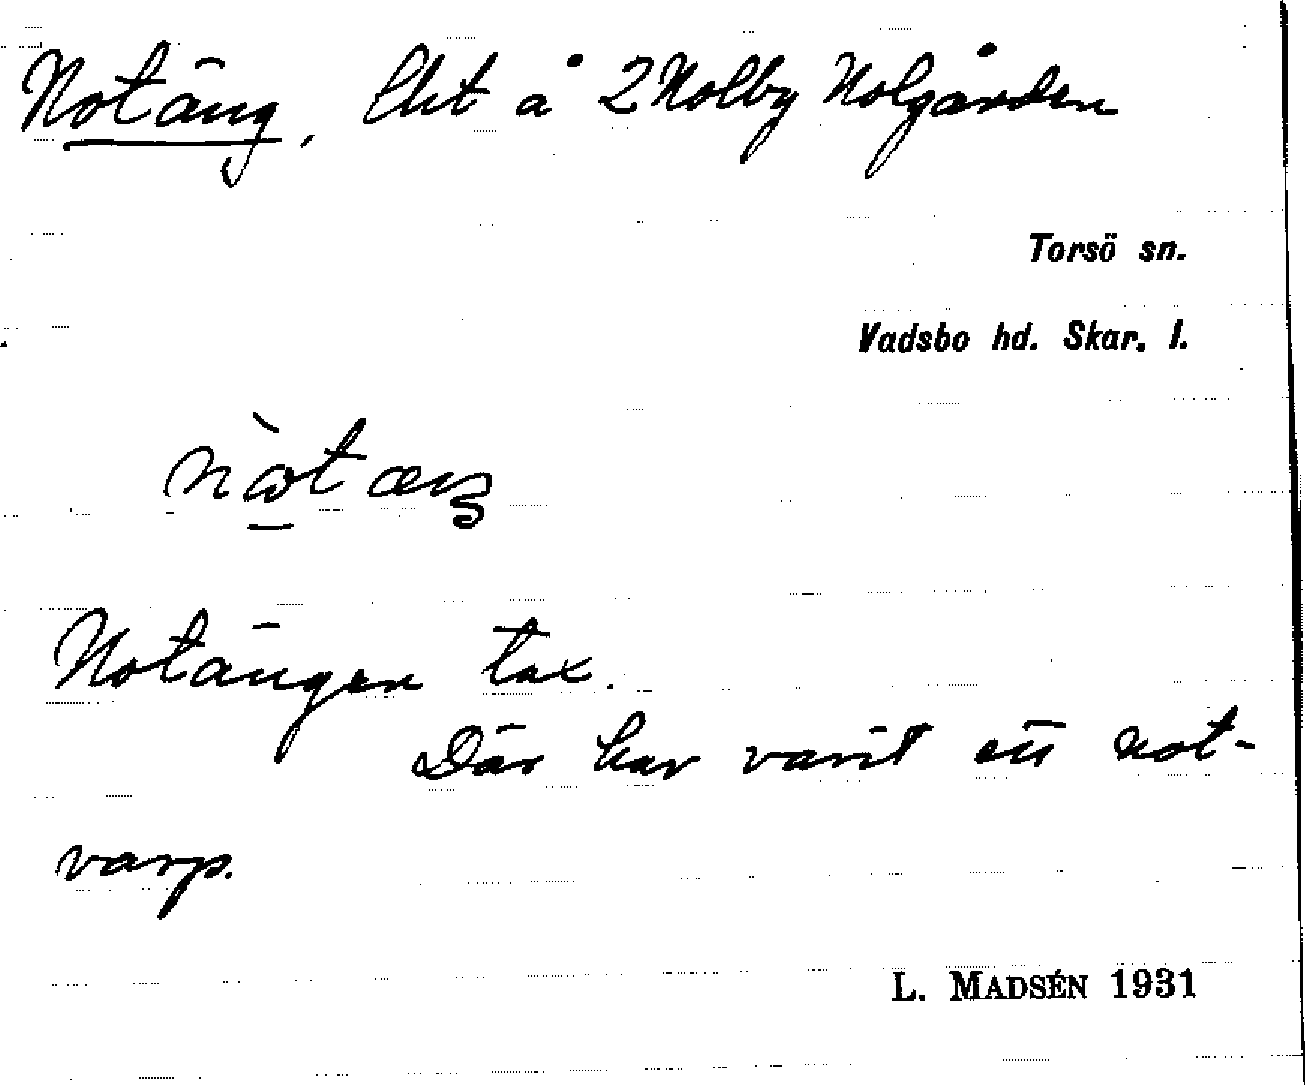 Notäng, lht å 2 Nolby Nolgården
Torsö sn.
Vadsbo hd. Skar. l.
Notängen tax.
Där har varit ett not-
varp.
L. MADSÉN 1931